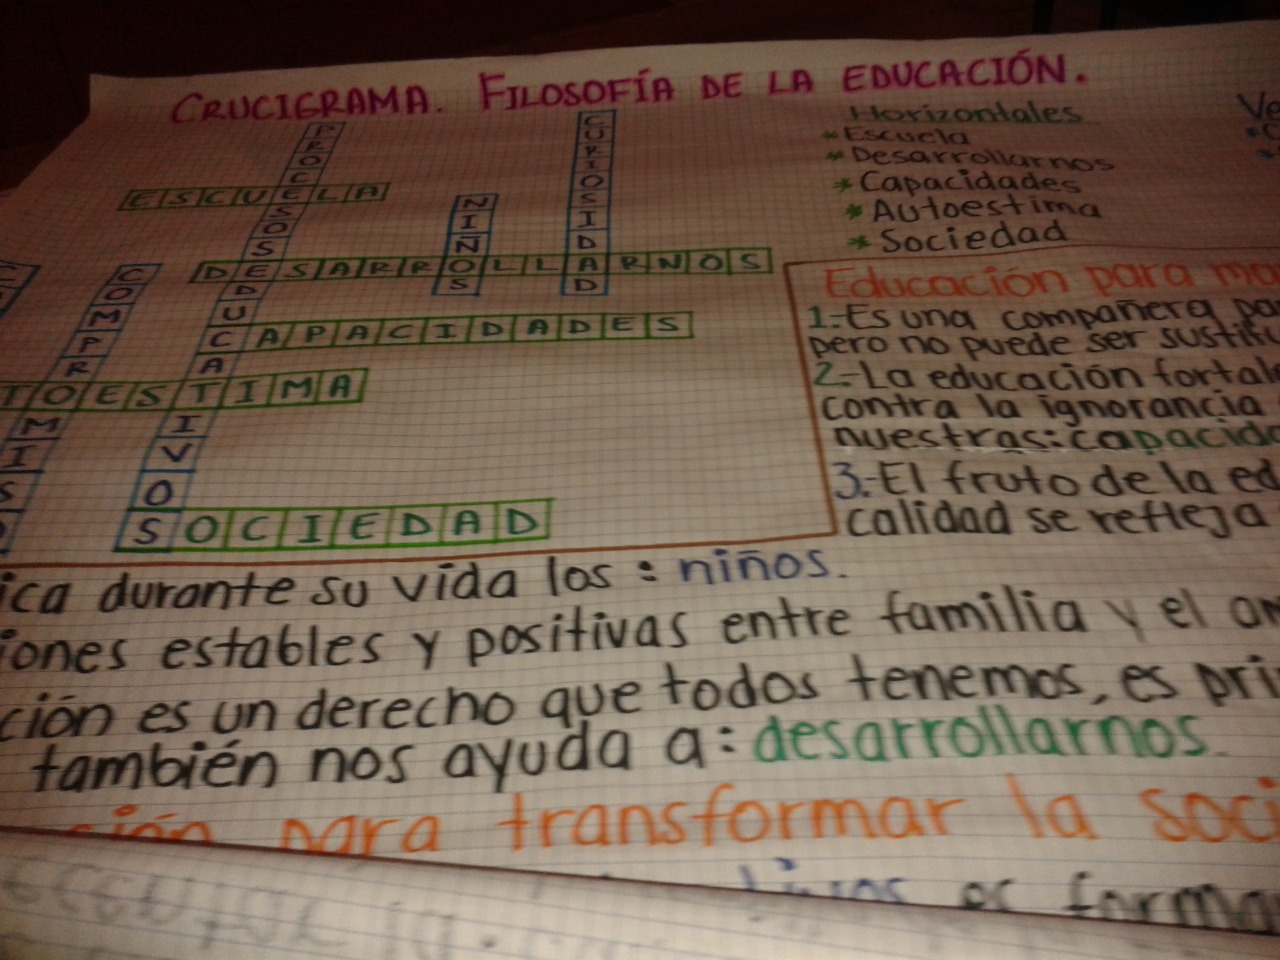 CRUCIGRAMA. FILOSOFÍA DE LA EDUCACIÓN.
PROCESOS EDUCATIVOS
CURIOSIDAD
ESCUELA
NIÑOS
DESARROLLARNOS
COMPR MIS
CAPACIDADES
TOESTIMA
SOCIEDAD
Horizontales
* Escuela
* Desarrollarnos
* Capacidades
* Autoestima
* Sociedad
Ve
Educación para
1.- Es una compañera
pero no puede ser
2.- La educación
contra la ignorancia
nuestras:
3.- El fruto de la ed
calidad se refleja
ica durante su vida los : niños.
iones estables y positivas entre familia y el
ción es un derecho que todos tenemos, es
también nos ayuda a: desarrollarnos.
ción para transformar la soci
es forma